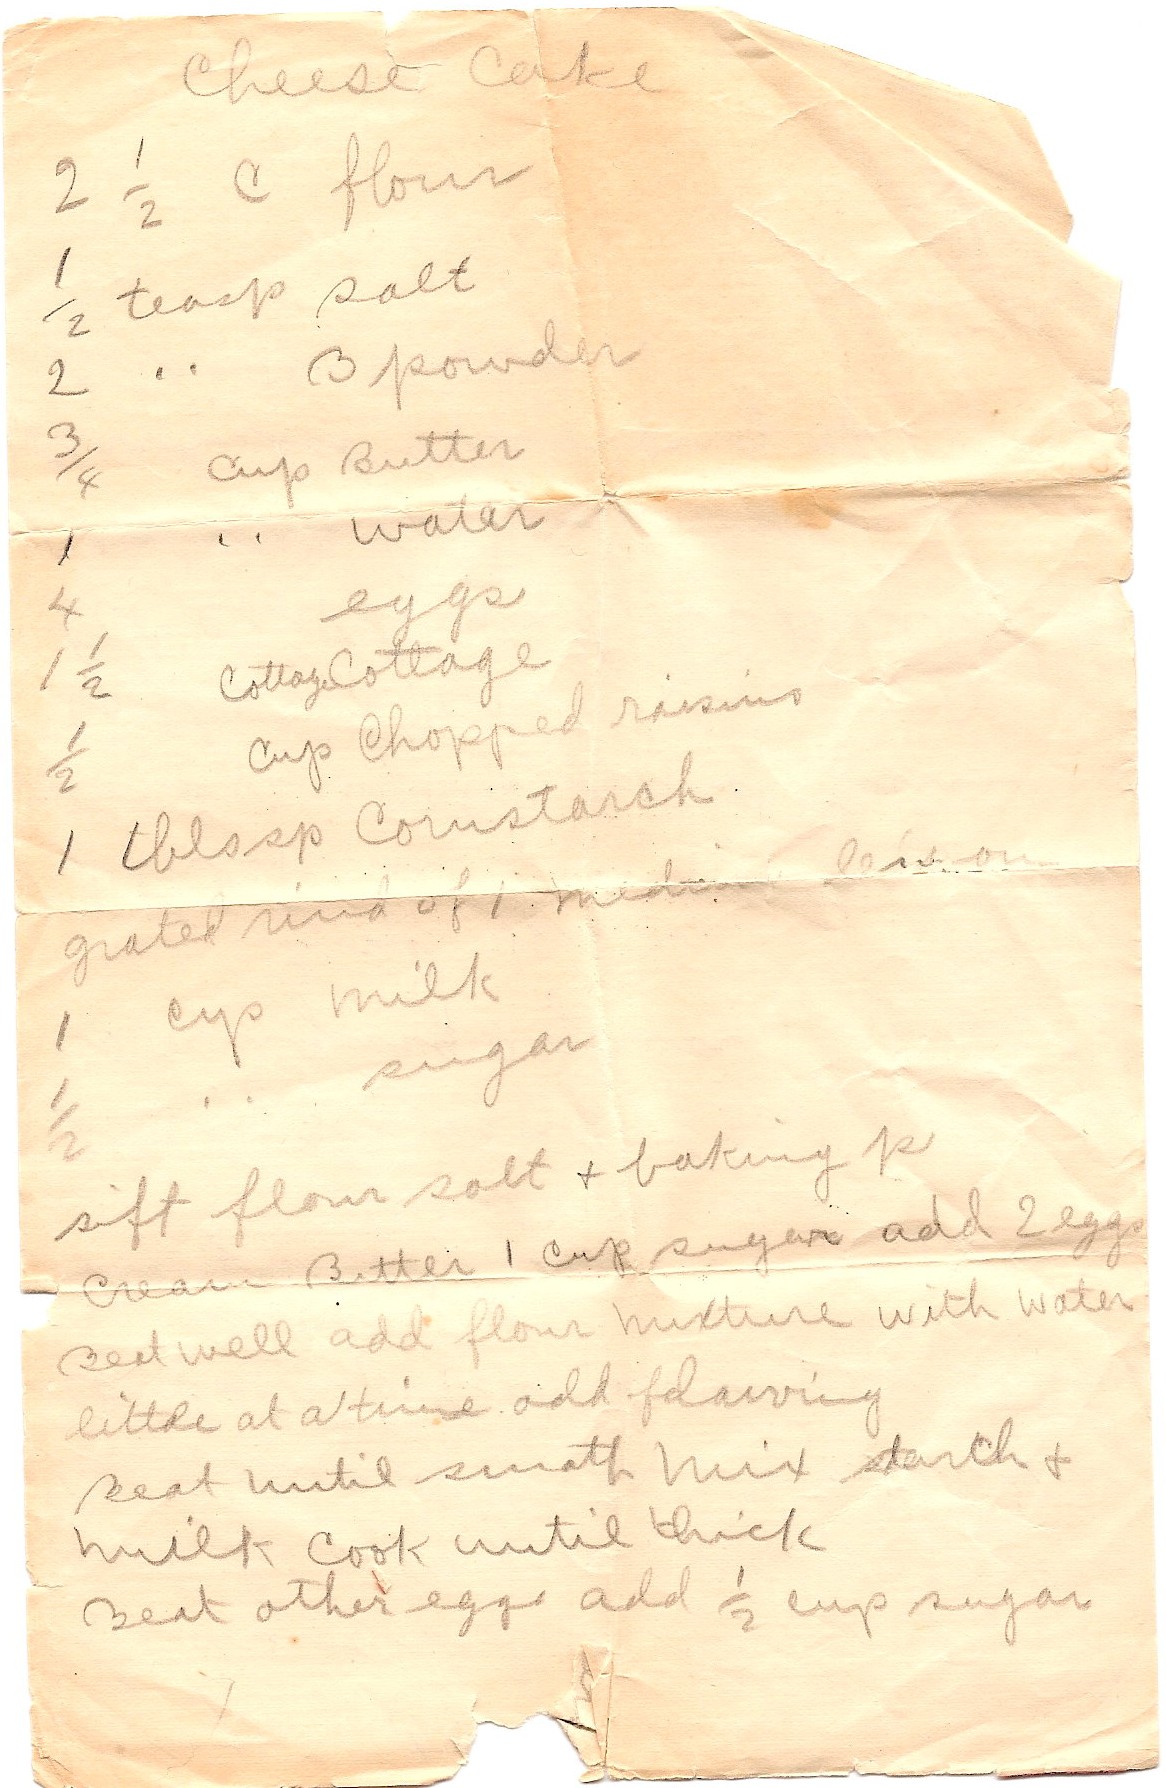 Cheese Cake
2 1/2 C flour
1/2 teasp salt
2 " B powder
3/4 cup Butter
1 " water
4 eggs
1 1/2 Cottage Cottage
1/2 cup Chopped raisins
1 tblssp Cornstarch
grated rind of 1 medium lemon
1 cup milk
1/2 " sugar
sift flour salt + baking p
Cream Butter 1 cup sugar add 2 eggs
Beat well add flour mixture with water
little at a time add flavoring
Beat until smoth Mix starch +
milk Cook until thick
Beat other eggs add 1/2 cup sugar